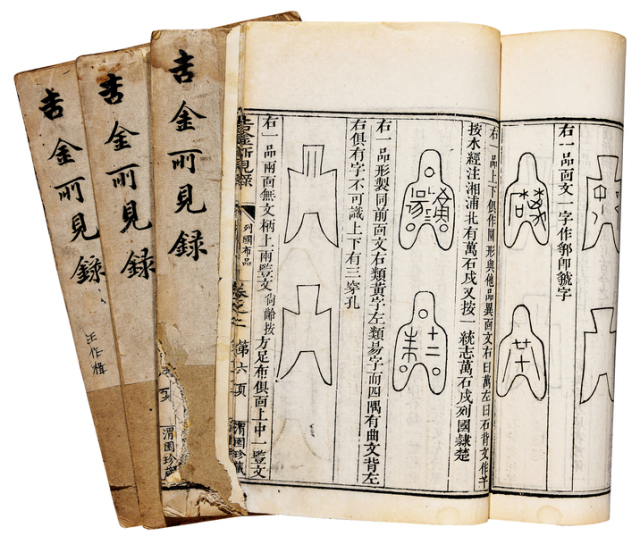 右一品面文一字作郛即虢字
右一品上下俱作圓形與他品異面文右曰萬左曰石背文作十
按水經注湘浦北有萬石戍又按一統志萬石戍列國隸楚
右一品形製同前面文右類黃字左類易字而四隅有曲文背左
右俱有字不可識上下有三穿孔
右一品兩面無文柄上兩豎文尙齡按方足布俱面上中一豎文
吉金所見錄
列國布品
卷之二
第六項
渭園珍藏
吉金所見録
渭園珍藏
吉金所見録
吉金所見録
汪作楫